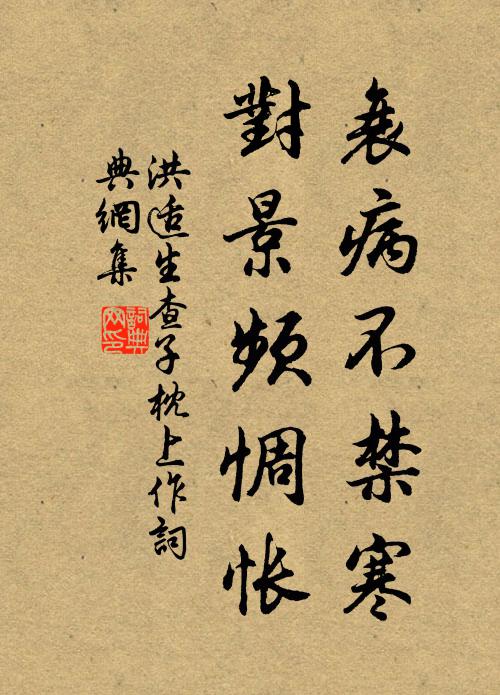 衰病不禁寒
對景頻惆怅
洪适生查子枕上作詞
典網集
詞典网印